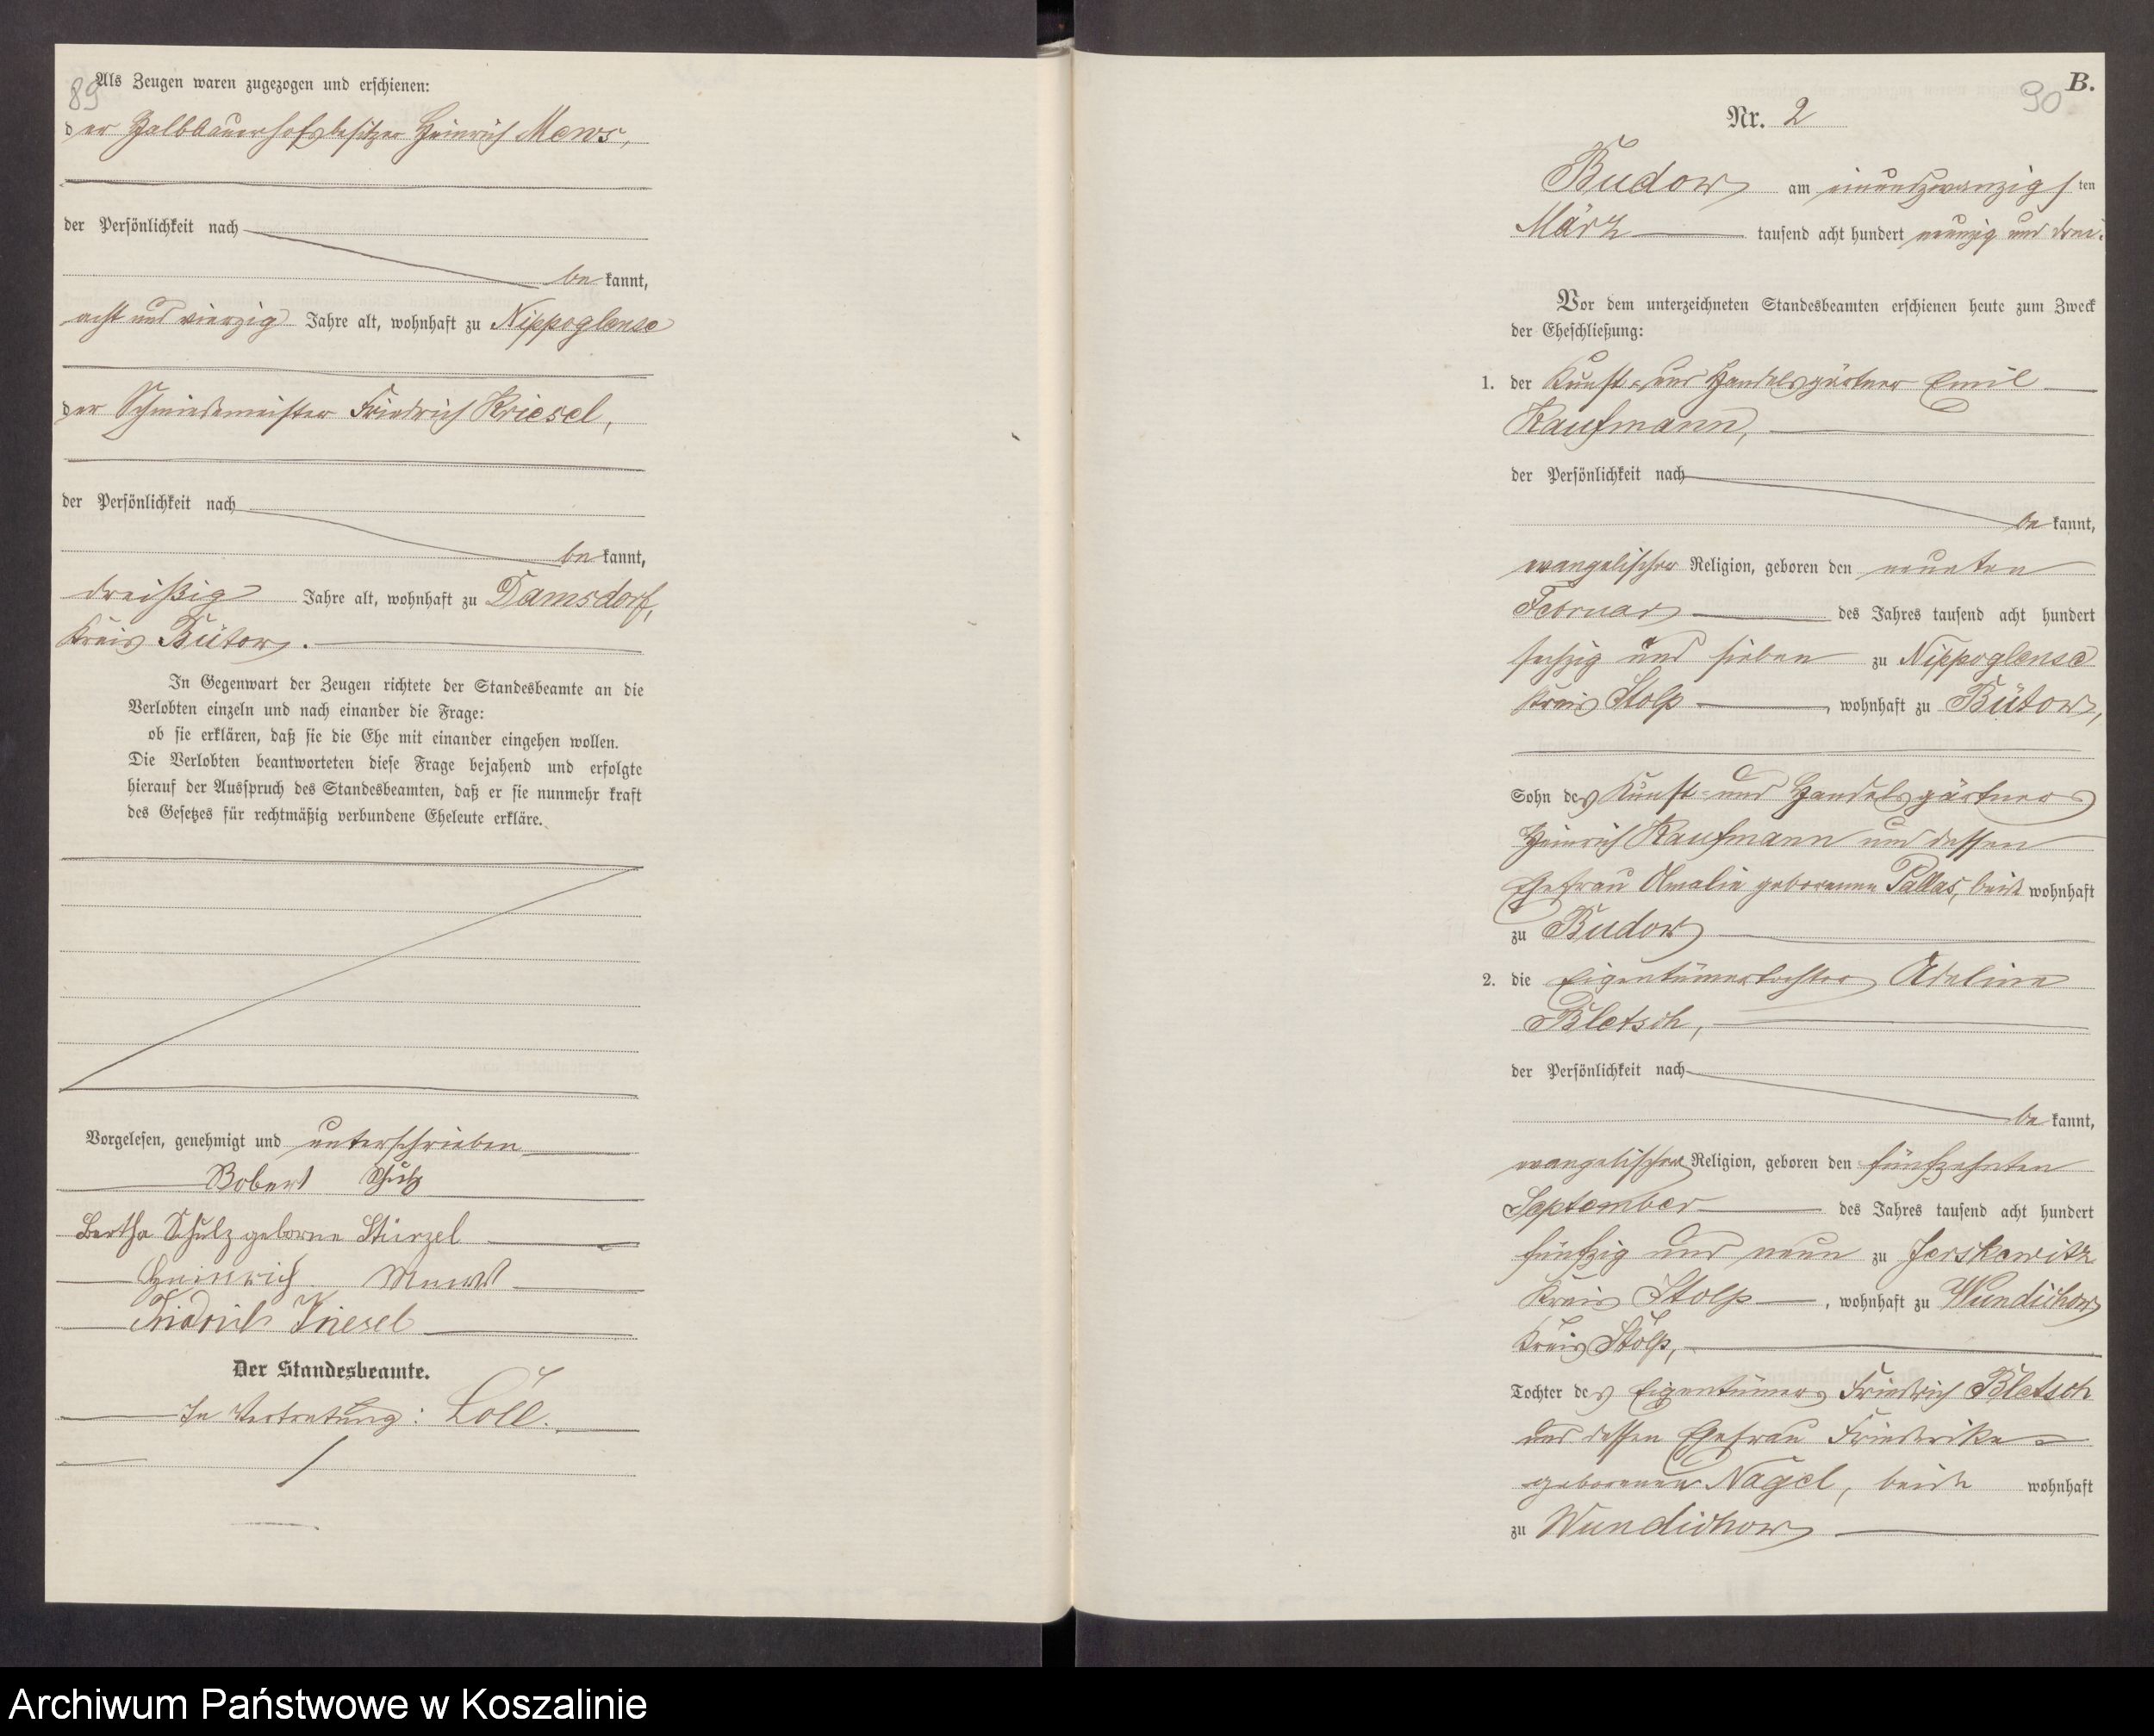 89
Als Zeugen waren zugezogen und erschienen:
der Halbbauerhofsbesitzer Heinrich Mews,
der Persönlichkeit nach
be kannt,
acht und vierzig Jahre alt, wohnhaft zu Nippoglense
der Schmiedemeister Friedrich Kriesel,
der Persönlichkeit nach
be kannt,
dreißig Jahre alt, wohnhaft zu Damsdorf,
Kreis Bütow.
In Gegenwart der Zeugen richtete der Standesbeamte an die
Verlobten einzeln und nach einander die Frage:
ob sie erklären, daß sie die Ehe mit einander eingehen wollen.
Die Verlobten beantworteten diese Frage bejahend und erfolgte
hierauf der Ausspruch des Standesbeamten, daß er sie nunmehr kraft
des Gesetzes für rechtmäßig verbundene Eheleute erkläre.
Vorgelesen, genehmigt und unterschrieben
Robert Schulz
Bertha Schulz geborne Stürzel
Heinrich Mews
Friedrich Kriesel
Der Standesbeamte.
In Vertretung: Loll.
90
B.
Nr. 2
Budow am einundzwanzigsten
März tausend acht hundert neunzig und drei.
Vor dem unterzeichneten Standesbeamten erschienen heute zum Zweck
der Eheschließung:
1. der Kunst- und Handelsgärtner Emil
Kaufmann,
der Persönlichkeit nach
be kannt,
evangelischer Religion, geboren den neunten
Februar des Jahres tausend acht hundert
sechzig und sieben zu Nippoglense
Kreis Stolp, wohnhaft zu Bütow,
Sohn des Kunst- und Handelsgärtners
Heinrich Kaufmann und dessen
Ehefrau Amalie geborenen Pallas, beide wohnhaft
zu Budow
2. die Eigentümertochter Adeline
Bletsch,
der Persönlichkeit nach
be kannt,
evangelischer Religion, geboren den fünfzehnten
September des Jahres tausend acht hundert
fünfzig und neun zu Jerskewitz
Kreis Stolp, wohnhaft zu Wundichow
Kreis Stolp,
Tochter des Eigentümers Friedrich Bletsch
und dessen Ehefrau Friederike
geborenen Nagel, beide wohnhaft
zu Wundichow
Archiwum Państwowe w Koszalinie